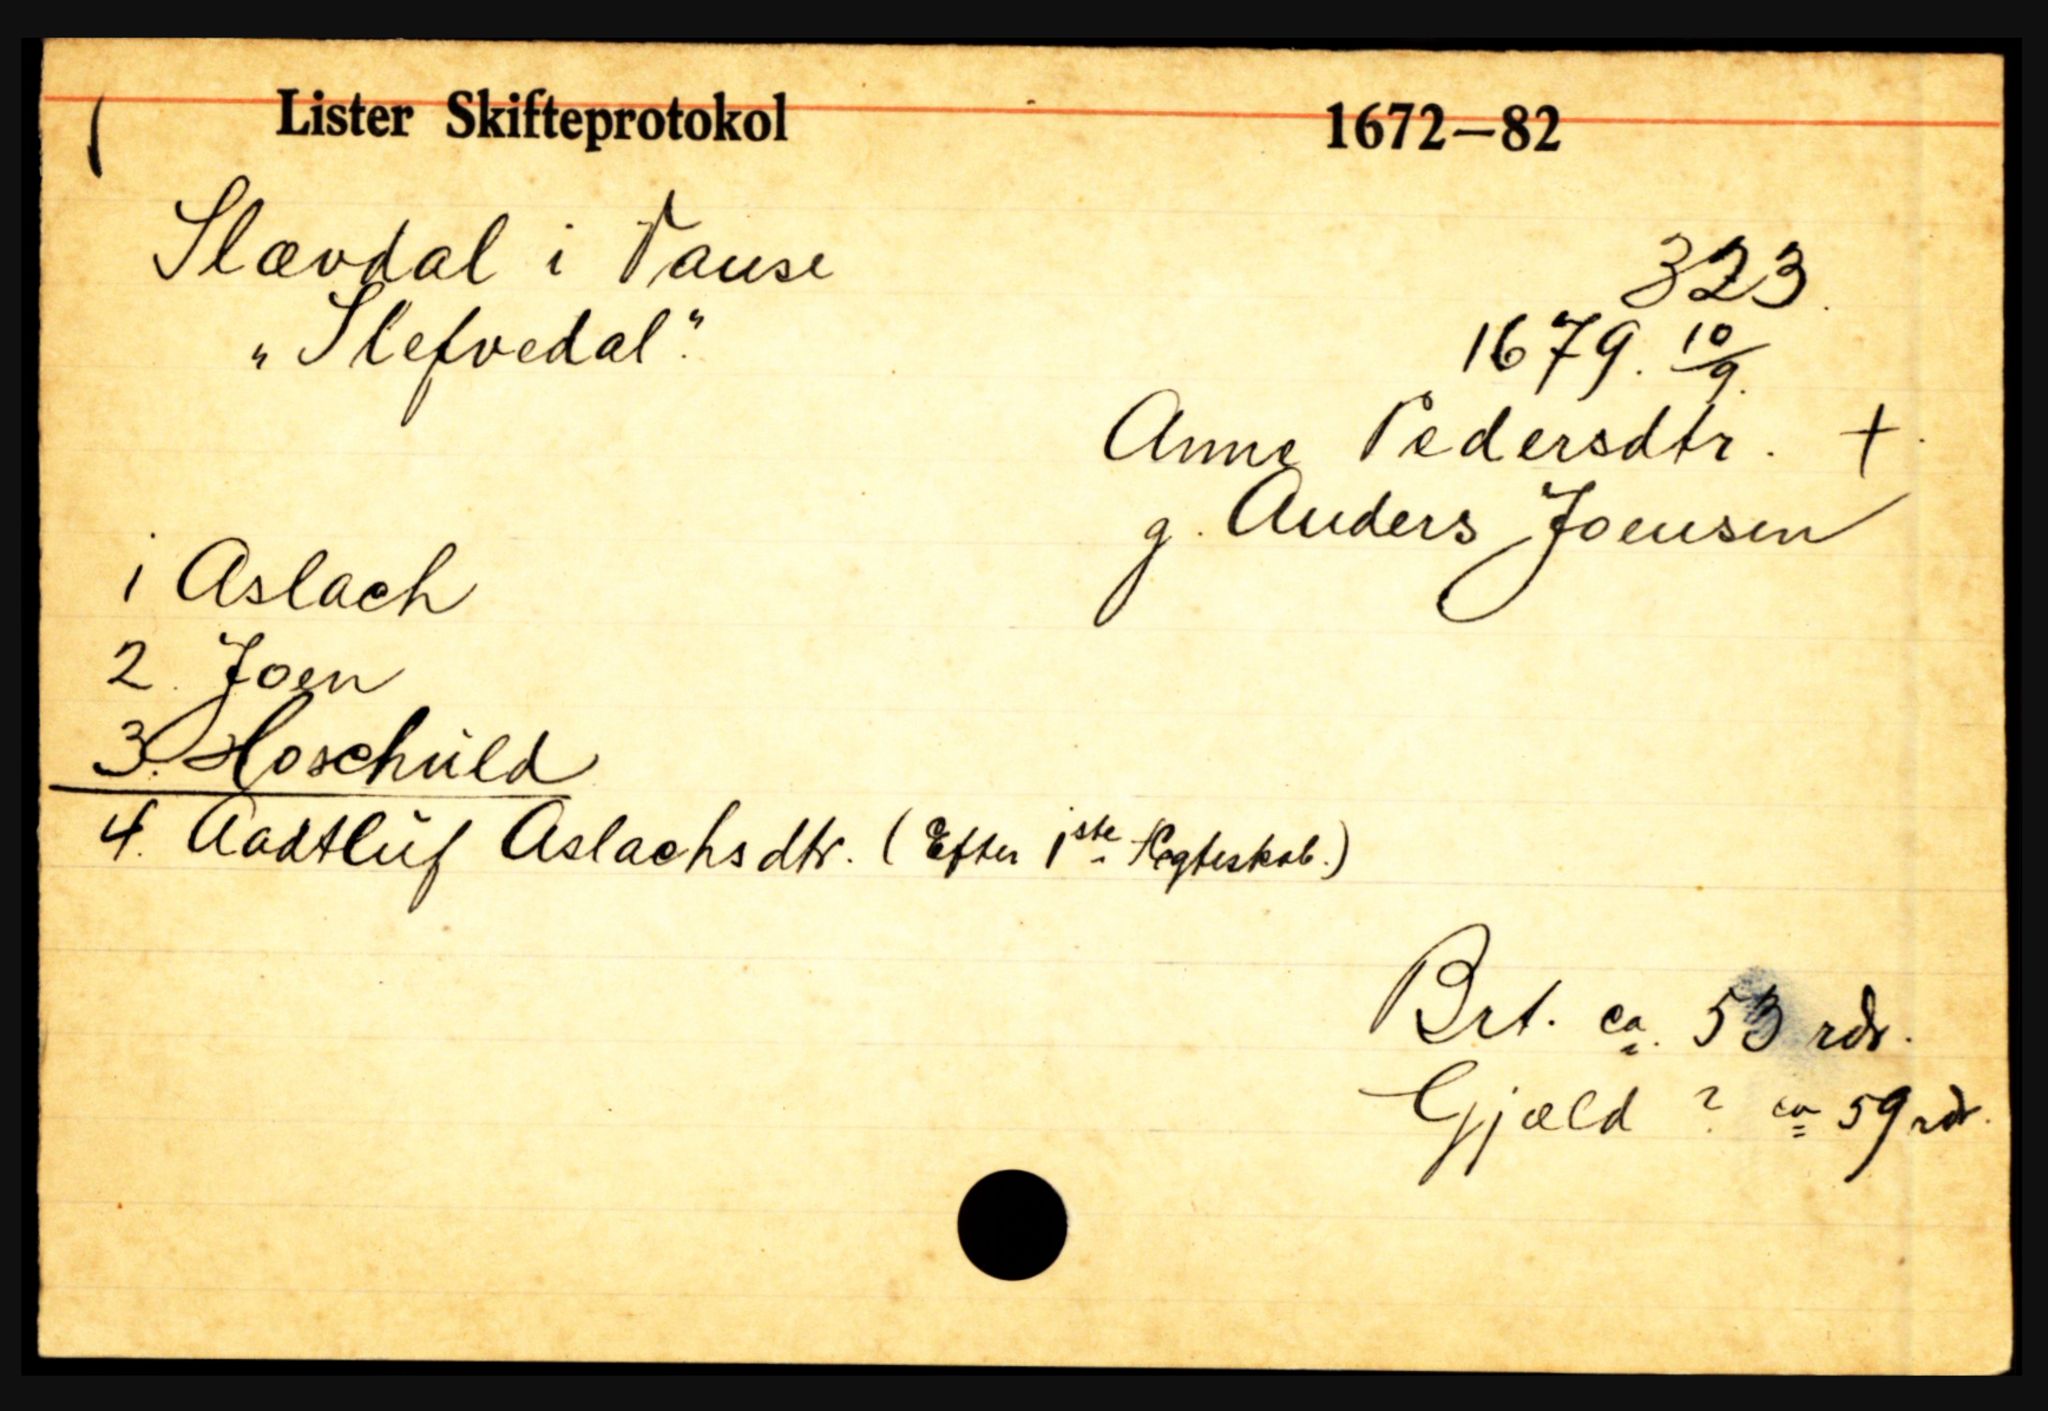 Lister Skifteprotokol 1672—82
Slævdal i Vanse
323.
„Slefvedal".
1679. 10/9.
Anne Pedersdtr. +
g. Anders Joensen
1 Aslach
2. Joen
3. Hoschuld
4. Aadtluf Aslachsdtr. (Efter 1ste Ægteskab.)
Brt. ca. 53 rdr.
Gjæld ? ca 59 rdr.